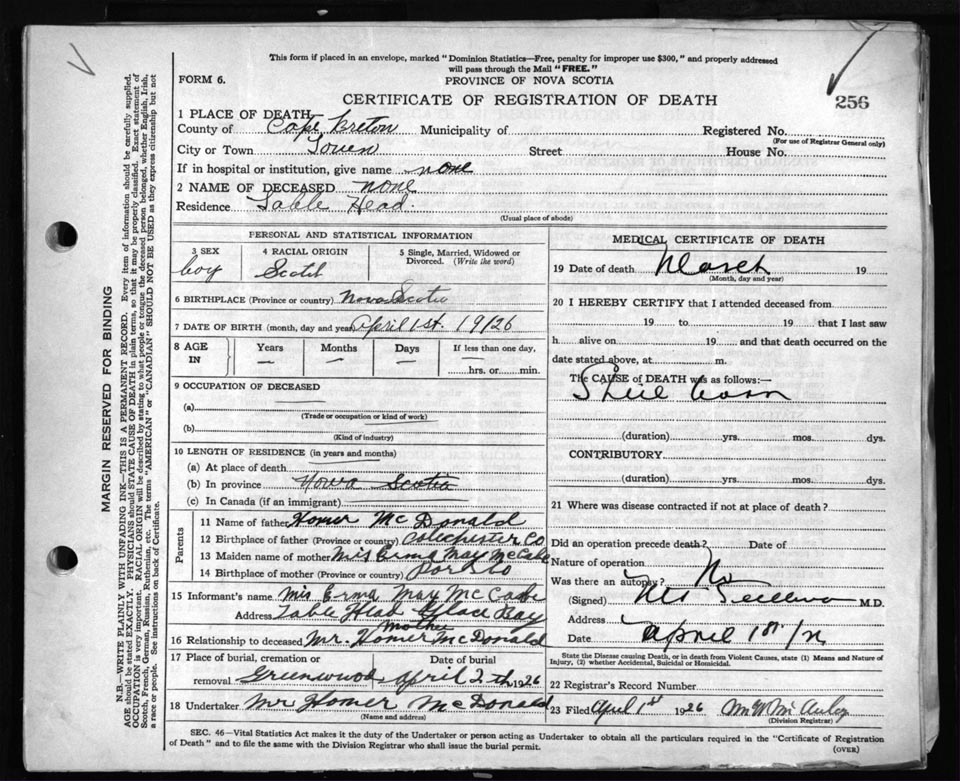 This form if placed in an envelope, marked "Dominion Statistics—Free, penalty for improper use $300," and properly addressed
will pass through the Mail "FREE."
FORM 6.
PROVINCE OF NOVA SCOTIA
CERTIFICATE OF REGISTRATION OF DEATH
256
1 PLACE OF DEATH
County of Cape Breton Municipality of Registered No.
(For use of Registrar General only)
City or Town Street House No.
If in hospital or institution, give name none
2 NAME OF DECEASED none
Residence Table Head.
(Usual place of abode)
PERSONAL AND STATISTICAL INFORMATION
3 SEX 4 RACIAL ORIGIN 5 Single, Married, Widowed or
Divorced. (Write the word)
boy Scotch
6 BIRTHPLACE (Province or country) Nova Scotia
7 DATE OF BIRTH (month, day and year) April 1st. 19/26
8 AGE IN Years Months Days If less than one day,
— — — hrs. or min.
9 OCCUPATION OF DECEASED
(a)
(Trade or occupation or kind of work)
(b)
(Kind of industry)
10 LENGTH OF RESIDENCE (in years and months)
(a) At place of death
(b) In province Nova Scotia
(c) In Canada (if an immigrant)
Parents
11 Name of father Homer McDonald
12 Birthplace of father (Province or country) Colechester Co
13 Maiden name of mother Mis Erma May McCabe
14 Birthplace of mother (Province or country)
15 Informant's name Mis Erma May McCabe
Address Table Head Glace Bay
mother
16 Relationship to deceased Mr. Homer McDonald
17 Place of burial, cremation or Date of burial
removal Greenwood April 2th 1926
18 Undertaker Mr Homer McDonald
(Name and address)
MEDICAL CERTIFICATE OF DEATH
19 Date of death March 19
(Month, day and year)
20 I HEREBY CERTIFY that I attended deceased from
19 to 19 that I last saw
h alive on 19 and that death occurred on the
date stated above, at m.
The CAUSE of DEATH was as follows:—
Still born
(duration) yrs. mos. dys.
CONTRIBUTORY
(duration) yrs. mos. dys.
21 Where was disease contracted if not at place of death?
Did an operation precede death? Date of
Nature of operation
Was there an autophy? No
(Signed) M.D.
Address
Date April 1st
State the Disease causing Death, or in death from Violent Causes, state (1) Means and Nature of
Injury, (2) whether Accidental, Suicidal or Homicidal.
22 Registrar's Record Number
23 Filed April 1st 1926
(Division Registrar)
SEC. 46—Vital Statistics Act makes it the duty of the Undertaker or person acting as Undertaker to obtain all the particulars required in the "Certificate of Registration
of Death" and to file the same with the Division Registrar who shall issue the burial permit.
(OVER)
MARGIN RESERVED FOR BINDING
N.B.—WRITE PLAINLY WITH UNFADING INK—THIS IS A PERMANENT RECORD. Every item of information should be carefully supplied.
AGE should be stated EXACTLY. PHYSICIANS should STATE CAUSE OF DEATH in plain terms, so that it may be properly classified. Exact statement of
OCCUPATION is very important. RACIAL ORIGIN will be described by stating to what people or tongue the deceased person belonged, whether English, Irish,
Scotch, French, German, Russian, Ruthenian, etc. The terms "AMERICAN" or "CANADIAN" SHOULD NOT BE USED as they express citizenship but not
a race or people. See instructions on back of Certificate.